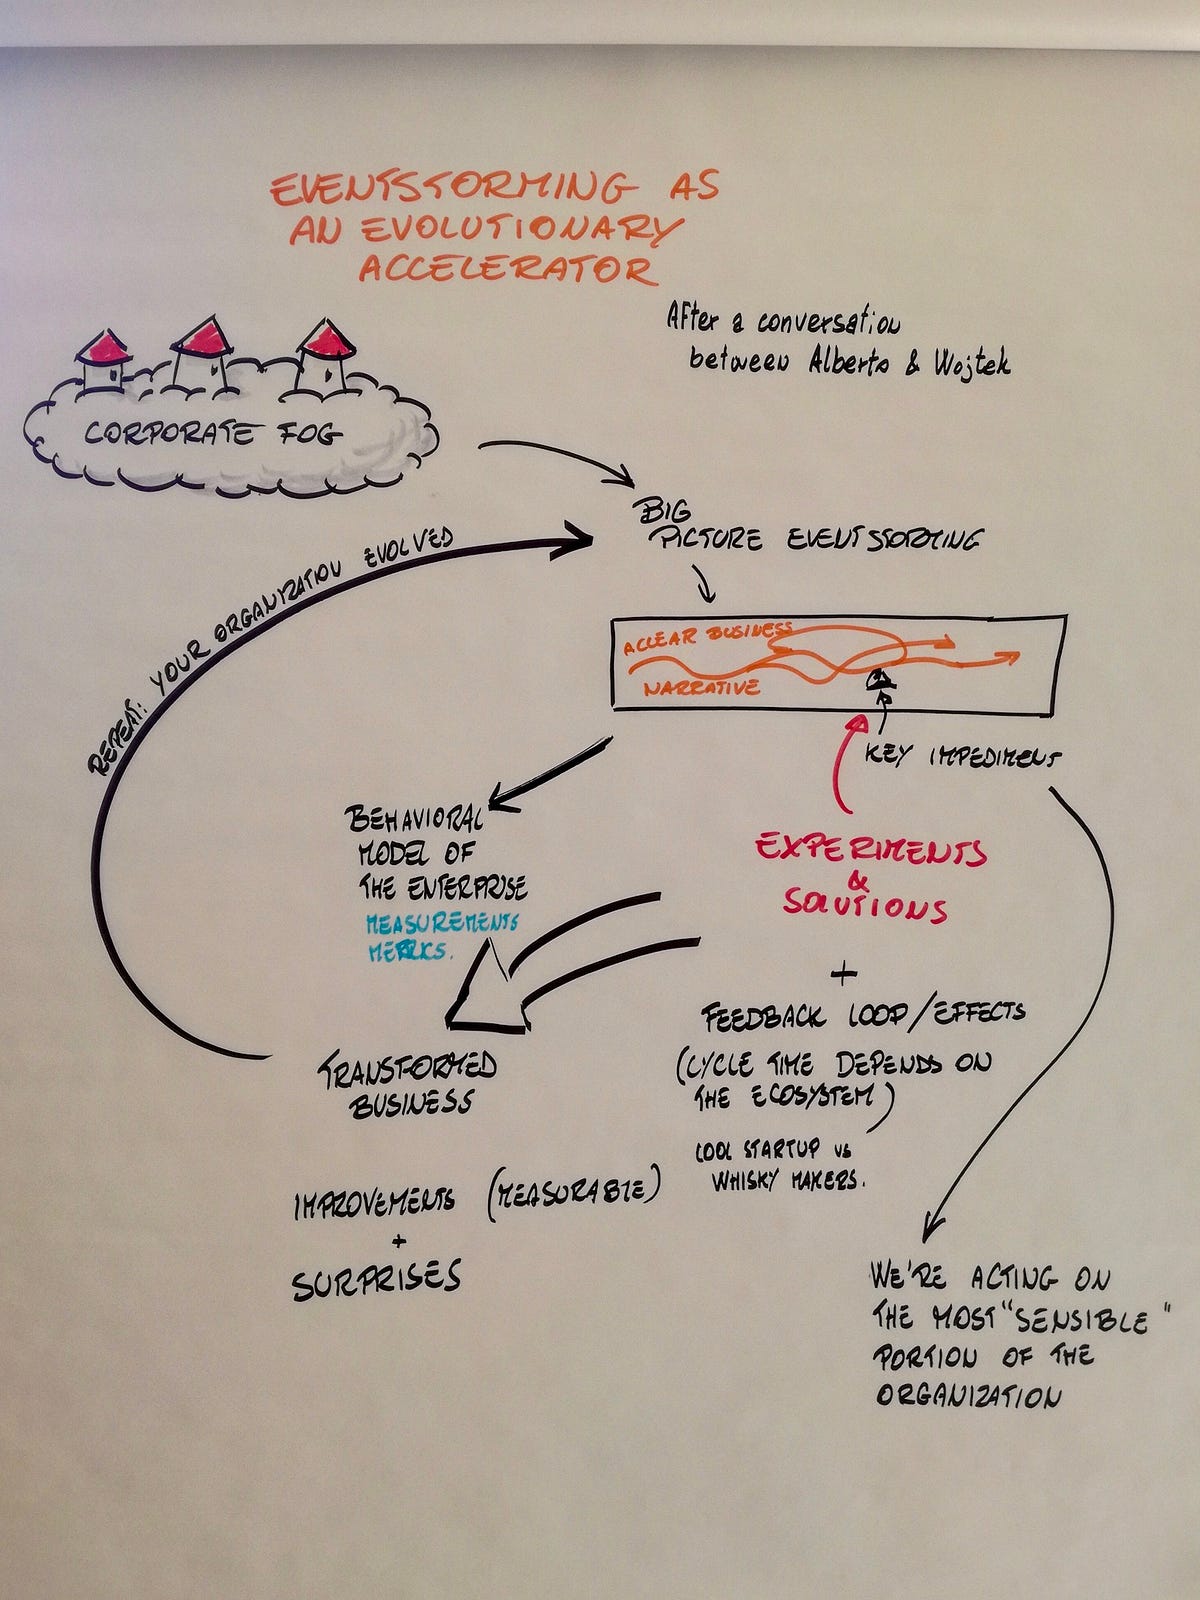 EVENTSTORMING AS
AN EVOLUTIONARY
ACCELERATOR
After a conversation
between Alberto & Wojtek
CORPORATE FOG
BIG
PICTURE EVENTSTORMING
REPEAT: YOUR ORGANYZATION EVOLVED
A CLEAR BUSINESS
NARRATIVE
KEY IMPEDIMENT
BEHAVIORAL
MODEL OF
THE ENTERPRISE
MEASUREMENTS
METRICS.
EXPERIMENTS
&
SOLUTIONS
+
FEEDBACK LOOP/EFFECTS
(CYCLE TIME DEPENDS ON
THE ECOSYSTEM)
COOL STARTUP vs
WHISKY MAKERS.
TRANSFORMED
BUSINESS
IMPROVEMENTS (MEASURABLE)
+
SURPRISES
WE'RE ACTING ON
THE MOST "SENSIBLE"
PORTION OF THE
ORGANIZATION